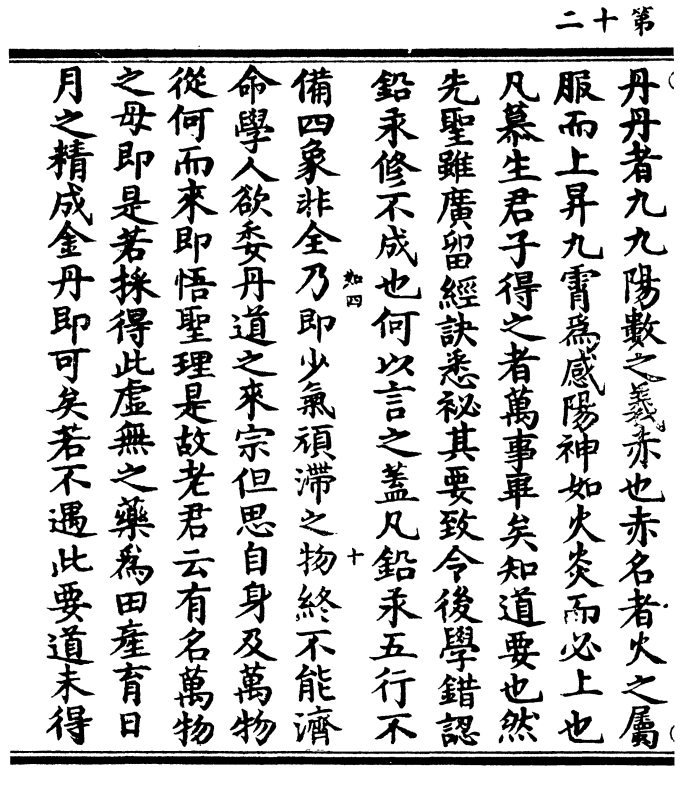 第十二
丹丹者九九陽數之義赤也赤名者火之屬
服而上昇九霄爲感陽神如火炎而必上也
凡慕生君子得之者萬事畢矣知道要也然
先聖雖廣留經訣悉祕其要致令後學錯認
鉛汞修不成也何以言之蓋凡鉛汞五行不
知四
十
備四象非全乃即少氣頑滯之物終不能濟
命學人欲委丹道之來宗但思自身及萬物
從何而來即悟聖理是故老君云有名萬物
之母即是若採得此虛無之藥爲田產育日
月之精成金丹即可矣若不遇此要道未得